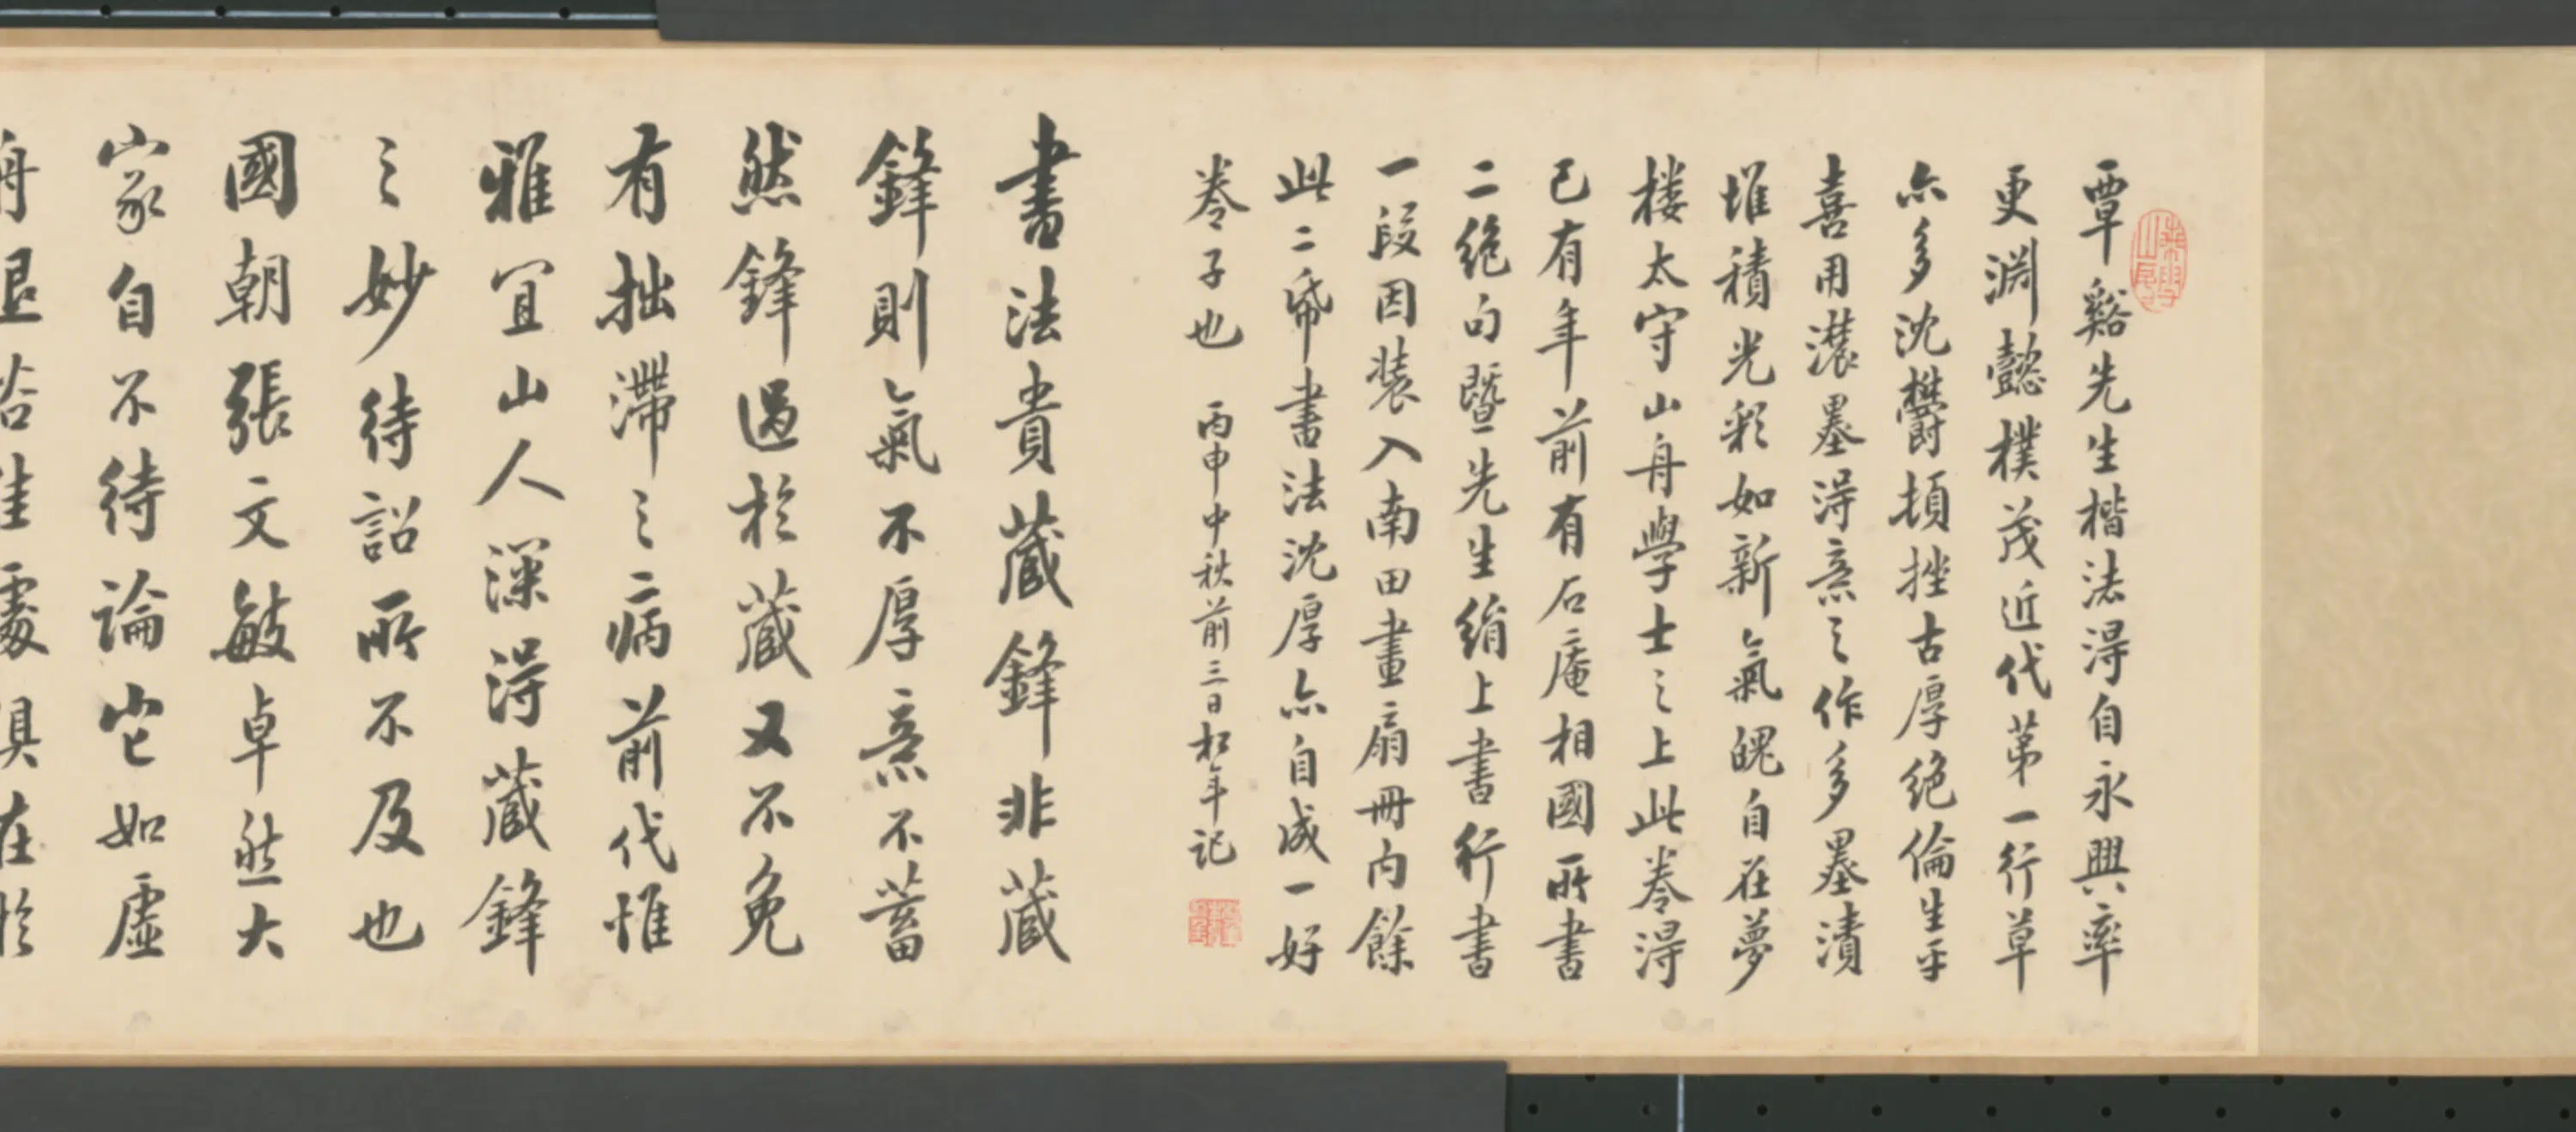 覃谿先生楷法得自永興率
更淵懿樸茂近代第一行草
亦多沈欝頓挫古厚絶倫生平
喜用濃墨得意之作多墨漬
堆積光彩如新氣魄自在夢
樓太守山舟學士之上此卷得
已有年前有石庵相國所書
二絶句暨先生絹上書行書
一段因装入南田畫扇冊内餘
此二帋書法沈厚亦自成一好
卷子也 丙申中秋前三日松年記
書法貴藏鋒非藏
鋒則氣不厚意不蓄
然鋒過於藏又不免
有拙滯之病前代惟
雅宜山人深得藏鋒
之妙待詔所不及也
國朝張文敏卓然大
家自不待論它如虚
舟退谷佳處俱在於